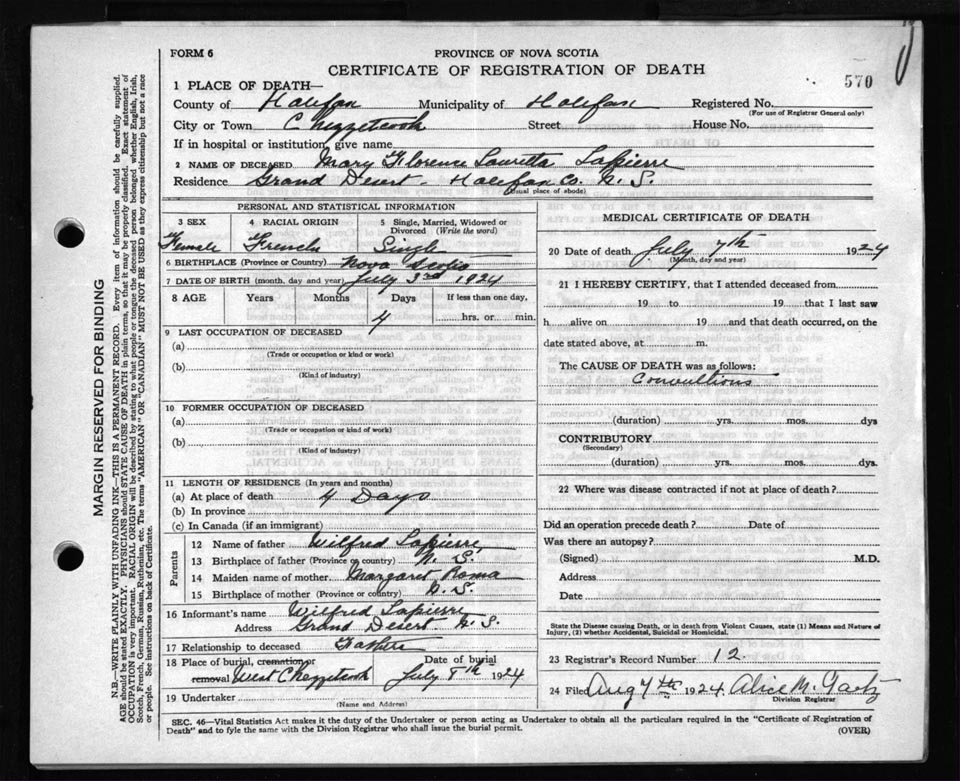 FORM 6
PROVINCE OF NOVA SCOTIA
CERTIFICATE OF REGISTRATION OF DEATH
570
1 PLACE OF DEATH—
County of Halifax Municipality of Halifax Registered No.
(For use of Registrar General only)
City or Town Chezzetcook Street House No.
If in hospital or institution, give name
2 NAME OF DECEASED Mary Florence Lauretta Lapierre
Residence Grand Desert - Halifax Co. N. S.
(Usual place of abode)
PERSONAL AND STATISTICAL INFORMATION
3 SEX 4 RACIAL ORIGIN 5 Single, Married, Widowed or Divorced (Write the word)
Female French Single
6 BIRTHPLACE (Province or Country) Nova Scotia
7 DATE OF BIRTH (month, day and year) July 3rd 1924
8 AGE Years Months Days If less than one day,
4 hrs. or min.
9 LAST OCCUPATION OF DECEASED
(a)
(Trade or occupation or kind or work)
(b)
(Kind of industry)
10 FORMER OCCUPATION OF DECEASED
(a)
(Trade or occupation or kind of work)
(b)
(Kind of industry)
11 LENGTH OF RESIDENCE (In years and months)
(a) At place of death 4 Days
(b) In province
(c) In Canada (if an immigrant)
Parents
12 Name of father Wilfred Lapierre
13 Birthplace of father (Province or country) N. S.
14 Maiden name of mother Margaret Roma
15 Birthplace of mother (Province or country) N. S.
16 Informant's name Wilfred Lapierre
Address Grand Desert N. S.
17 Relationship to deceased Father
18 Place of burial, cremation or removal West Chezzetcook Date of burial July 8th 1924
19 Undertaker
(Name and Address)
MEDICAL CERTIFICATE OF DEATH
20 Date of death July 7th 1924
(Month, day and year)
21 I HEREBY CERTIFY, that I attended deceased from
19 to 19 that I last saw
h alive on 19 and that death occurred, on the
date stated above, at m.
The CAUSE OF DEATH was as follows:
Convultions
(duration) yrs. mos. dys
CONTRIBUTORY
(Secondary)
(duration) yrs. mos. dys.
22 Where was disease contracted if not at place of death?
Did an operation precede death? Date of
Was there an autopsy?
(Signed) M.D.
Address
Date
State the Disease causing Death, or in death from Violent Causes, state (1) Means and Nature of
Injury, (2) whether Accidental, Suicidal or Homicidal.
23 Registrar's Record Number 12.
24 Filed Aug 7th 1924 Alice M. Gaetz
Division Registrar
SEC. 46—Vital Statistics Act makes it the duty of the Undertaker or person acting as Undertaker to obtain all the particulars required in the "Certificate of Registration of
Death" and to fyle the same with the Division Registrar who shall issue the burial permit. (OVER)
MARGIN RESERVED FOR BINDING
N.B.—WRITE PLAINLY WITH UNFADING INK—THIS IS A PERMANENT RECORD. Every item of information should be carefully supplied.
AGE should be stated EXACTLY. PHYSICIANS should STATE CAUSE OF DEATH in plain terms, so that it may be properly classified. Exact statement of
OCCUPATION is very important. RACIAL ORIGIN will be described by stating to what people or tongue the deceased person belonged whether English, Irish,
Scotch, French, German, Russian, Ruthenian, etc. The terms "AMERICAN" OR "CANADIAN" MUST NOT BE USED as they express citizenship but not a race
or people. See instructions on back of Certificate.